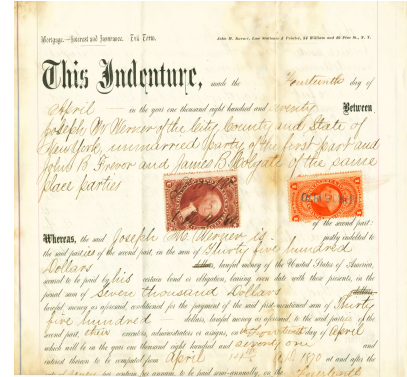 Mortgage.—Interest and Insurance.
John H. Duyster, Law Stationer & Printer, 54 William and 42 Pine St., N. Y.
This Indenture, made the Fourteenth day of
April — in the year one thousand eight hundred and seventy Between
Joseph W Werner of the City County and State of
New York, unmarried party of the first part and
John B Trevor and James B Colgate of the same
place parties
of the second part:
Whereas, the said Joseph W. Werner is justly indebted to
the said parties of the second part, in the sum of Thirty five hundred
Dollars dollars, lawful money of the United States of America,
secured to be paid by his certain bond or obligation, bearing even date with these presents, in the
penal sum of Seven thousand Dollars dollars,
lawful money as aforesaid, conditioned for the payment of the said first-mentioned sum of Thirty
five hundred dollars, lawful money as aforesaid, to the said parties of the
second part, their executors, administrators or assigns, on the Fourteenth day of April
which will be in the year one thousand eight hundred and seventy one and
interest thereon to be computed from April 14th 1870 at and after the